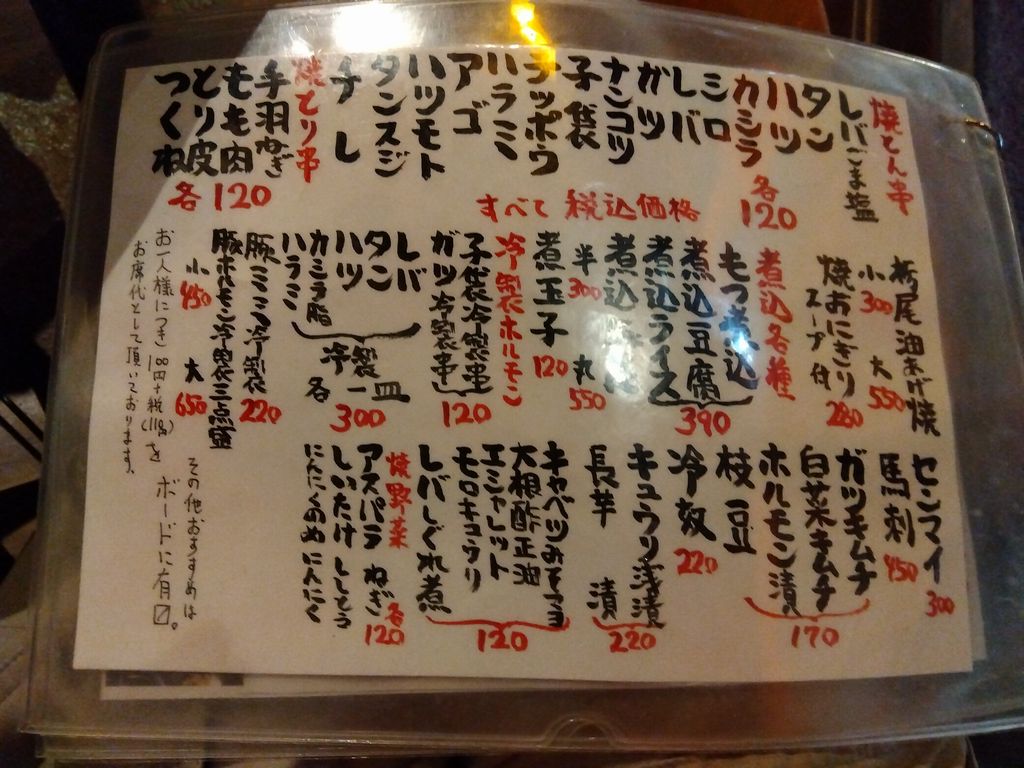 焼とん串
レバごま塩
タン
ハツ
カシラ
シロ
レバ
ガツ
ナンコツ
子袋
テッポウ
ハラミ
アゴ
ハツモト
タンスジ
チレ
各120
焼とり串
手羽ねぎ
もも肉
とり皮
つくね
各120
すべて 税込価格
栃尾油あげ焼
小300 大550
焼おにぎり
スープ付
280
煮込各種
もつ煮込
煮込豆腐
煮込ライス
390
煮込
半300 丸550
煮玉子
120
冷製ホルモン
子袋冷製串
ガツ冷製串
120
レバ
タン
ハツ
カシラ脂
ハラミ
冷製一皿
各300
豚ミミ冷製
220
豚ホルモン冷製三点盛
小450 大650
センマイ
300
馬刺
450
ガツキムチ
白菜キムチ
ホルモン漬
170
枝豆
冷奴
220
キュウリ浅漬
長芋漬
220
キャベツみそつき
大根酢正油
エシャレット
モロキュウリ
レバしぐれ煮
120
焼野菜
アスパラ ねぎ
しいたけ ししとう
にんにくめ にんにく
各120
お一人様につき100円+税(110)を
お席代として頂いております。
その他おすすめは
ボードに有〼。